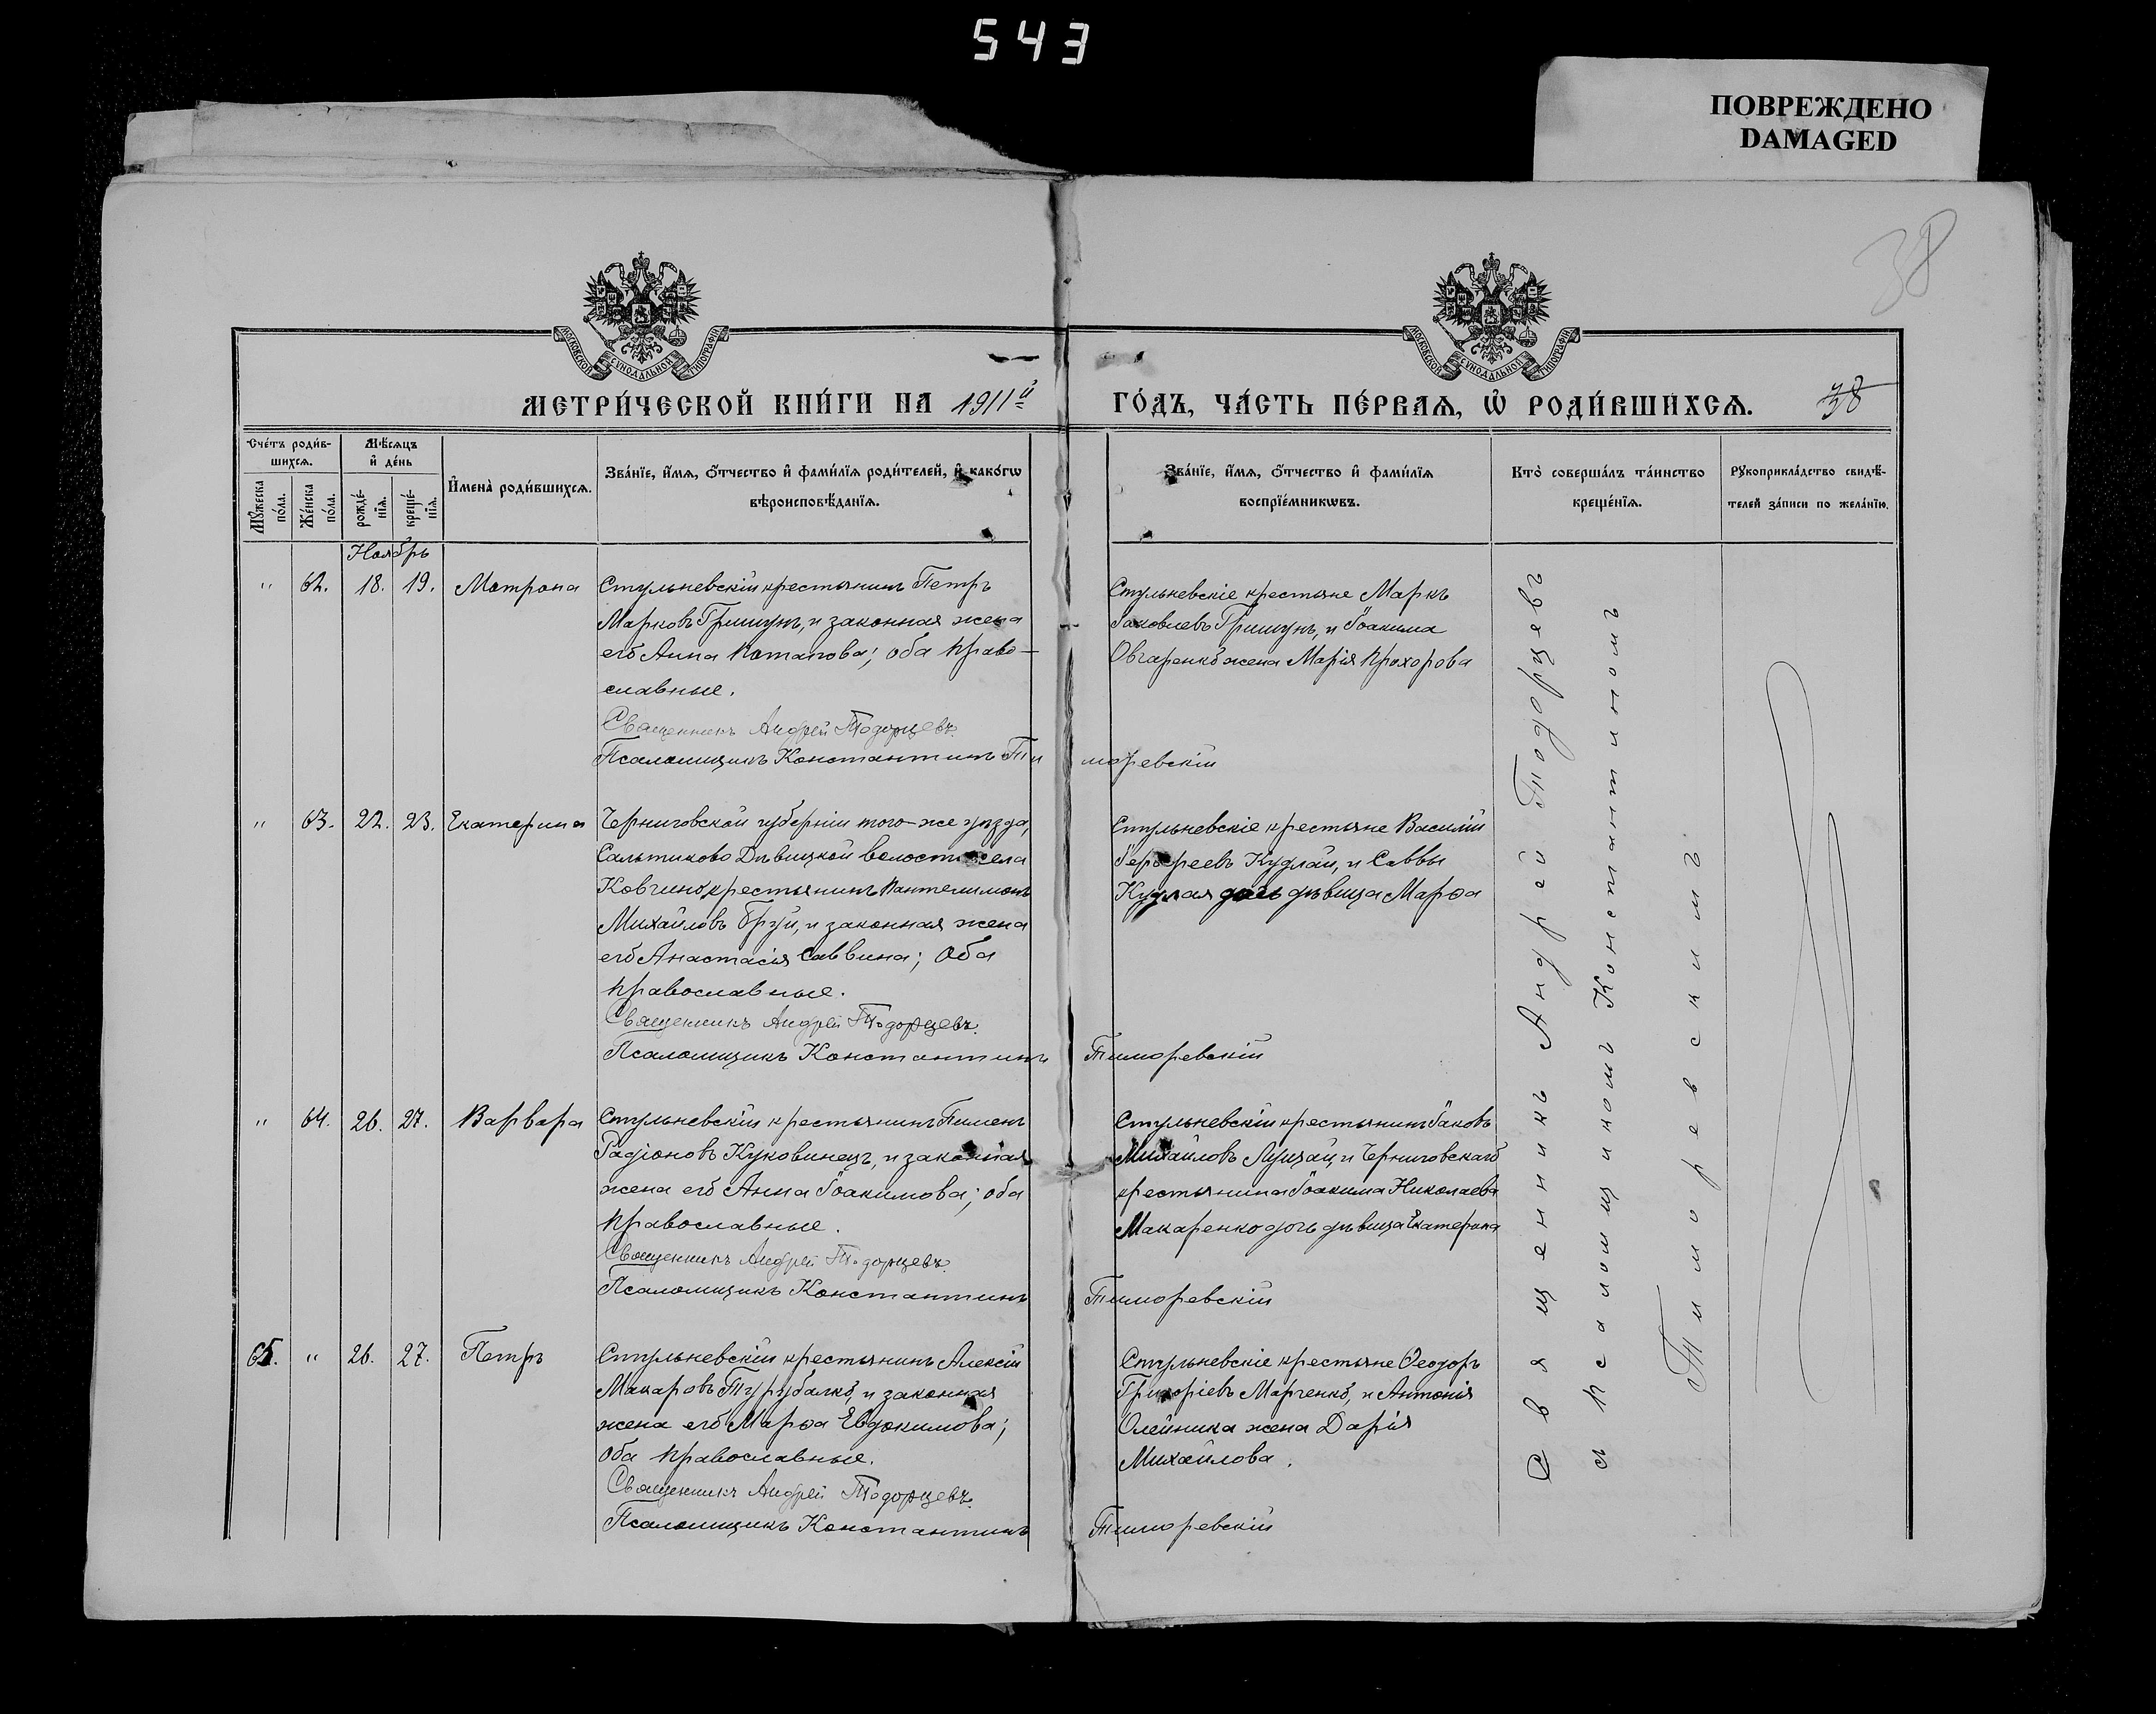 543
ПОВРЕЖДЕНО
DAMAGED
38
МОСКОВСКОЙ СѴНОДАЛЬНОЙ ТИПОГРАФІИ
МОСКОВСКОЙ СѴНОДАЛЬНОЙ ТИПОГРАФІИ
МЕТРИ́ЧЕСКОЙ КНИ́ГИ НА 1911й
ГО́ДЪ, ЧА́СТЬ ПЕ́РВАѦ, Ѡ҆ РОДИ́ВШИХСѦ. 38
Сче́тъ роди́в-
шихсѧ.
Мꙋ́жеска
по́ла.
Же́нска
по́ла.
Мѣ́сѧцъ
и҆ де́нь
рожде́-
нїѧ.
креще́-
нїѧ.
И҆мена̀ роди́вшихсѧ.
Зва́нїе, и҆́мѧ, ѻ҆́тчество и҆ фами́лїѧ роди́телей, и҆ како́гѡ
вѣроисповѣ́данїѧ.
Зва́нїе, и҆́мѧ, ѻ҆́тчество и҆ фами́лїѧ
воспрїе́мникѡвъ.
Кто̀ соверша́лъ та́инство
креще́нїѧ.
Рꙋкоприкла́дство свидѣ́-
телей за́писи по жела́нїю.
Ноябрь
" 62. 18. 19. Матрона
Стульневскій крестьянинъ Петръ
Марковъ Гришунъ, и законная жена
его Анна Потапова; оба право-
славные.
Священникъ Андрей Тодорцевъ.
Псаломщикъ Константинъ Тиморевскій
Стульневскіе крестьяне Маркъ
Іаковлевъ Гришунъ, и Іоакима
Овчаренко жена Марія Прохорова
" 63. 22. 23. Екатерина
Черниговской губерніи того-же уѣзда,
Салтыково Дѣвицкой волости села
Ковчино крестьянинъ Пантелимонъ
Михайловъ Бруй, и законная жена
его Анастасія Саввина; Оба
православные.
Священникъ Андрей Тодорцевъ.
Псаломщикъ Константинъ Тиморевскій
Стульневскіе крестьяне Василій
Кудлай, и Саввы
Кудлая дочь дѣвица Марѳа
" 64. 26. 27. Варвара
Стульневскій крестьянинъ Пименъ
Радіоновъ Куковинецъ, и законная
жена его Анна Іоакимова; оба
православные.
Священникъ Андрей Тодорцевъ.
Псаломщикъ Константинъ Тиморевскій
Стульневскій крестьянинъ Іаковъ
Михайловъ Лущай, и Черниговскаго
крестьянина Іоакима Николаева
Макаренко дочь дѣвица Екатерина
65. " 26. 27. Петръ
Стульневскій крестьянинъ Алексій
Макаровъ Турубалко, и законная
жена его Марѳа Евдокимова;
Оба православные.
Священникъ Андрей Тодорцевъ.
Псаломщикъ Константинъ Тиморевскій
Стульневскіе крестьяне Ѳеодоръ
Григоріевъ Марченко, и Антонія
Олейника жена Дарія
Михайлова.
Священникъ Андрей Тодорцевъ
съ псаломщикомъ Константиномъ
Тиморевскимъ.